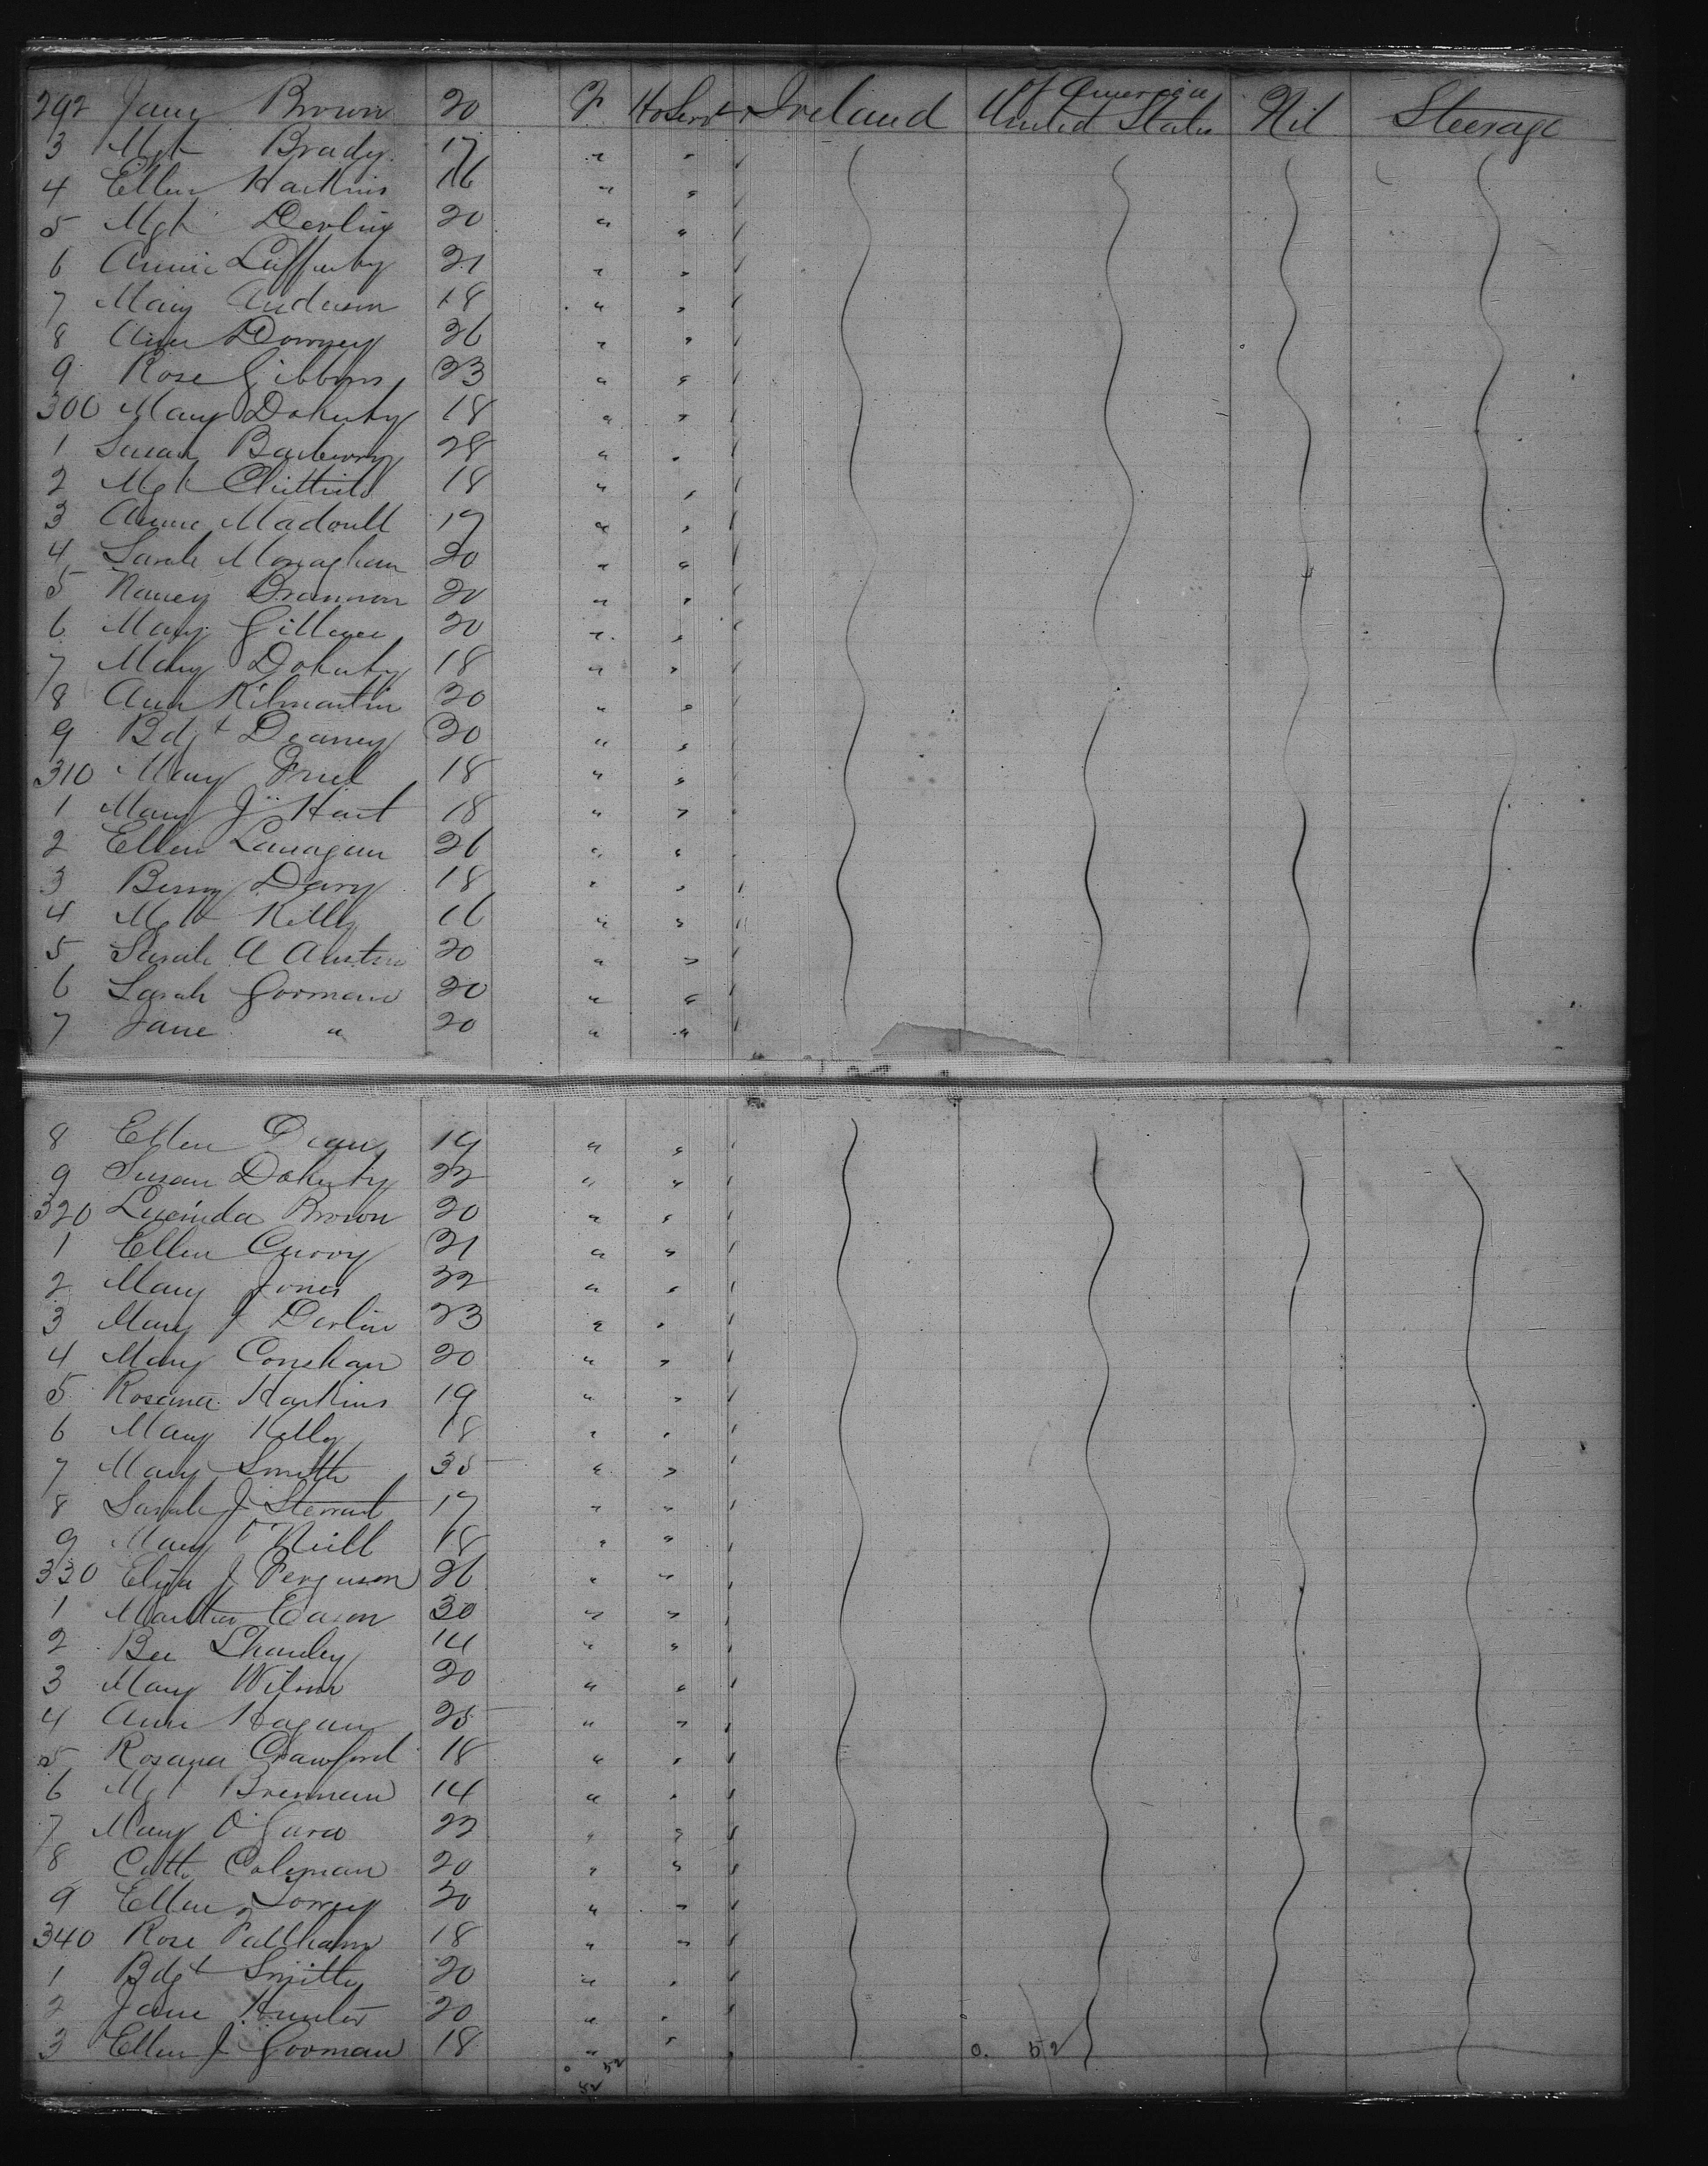 292 Jane Brown 20 F HoServt Ireland United States of America Nil Steerage
3 Mgt Brady 17 " "
4 Ellen Harkins 16 " "
5 Mgt Devlin 20 " "
6 Annie Lafferty 21 " "
7 Mary Anderson 18 " "
8 Ann Downey 26 " "
9 Rose Gibbons 23 " "
300 Mary Doherty 18 " "
1 Susan 28 " "
2 Mgt 18 " "
3 Annie 19 " "
4 Sarah Monaghan 20 " "
5 Nancy Brannon 20 " "
6 Mary 20 " "
7 Mary Doherty 18 " "
8 Ann Kilmartin 20 " "
9 Bdgt Deaney 20 " "
310 Mary Friel 18 " "
1 Mary J Hart 18 " "
2 Ellen Lanagan 26 " "
3 Davy 18 " "
4 Mgt Kelly 16 " "
5 Sarah A Austin 20 " "
6 Sarah Gorman 20 " "
7 Jane " 20 " "
8 Ellen 19 " "
9 Susan Doherty 22 " "
320 Lucinda Brown 20 " "
1 Ellen Curry 21 " "
2 Mary Jones 22 " "
3 Mary J Devlin 23 " "
4 Mary 20 " "
5 Rosanna Harkins 19 " "
6 Mary Kelly 18 " "
7 Mary Smith 35 " "
8 Sarah J Stewart 17 " "
9 Mary O'Neill 18 " "
330 Eliza J Ferguson 26 " "
1 Martha Eason 30 " "
2 Bee 14 " "
3 Mary Wilson 20 " "
4 Ann Hagan 25 " "
5 Rosana Crawford 18 " "
6 Mgt Brennan 14 " "
7 Mary O'Gara 22 " "
8 Cath Coleman 20 " "
9 Ellen 20 " "
340 Rose 18 " "
1 Bdgt Smith 20 " "
2 Jane Hunter 20 " "
3 Ellen J Gorman 18 " "
0 52 0. 52
52